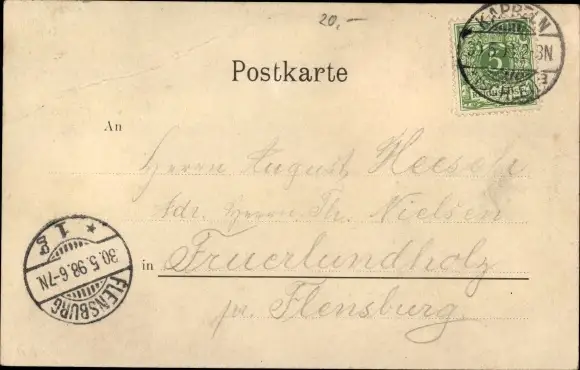 20,-
KAPPELN
5
Postkarte
An
Herrn August Heesch
Adr. Herrn Th. Nielsen
in Fruerlundholz
pr. Flensburg.
FLENSBURG
30.5.98.6-7N.
* 1